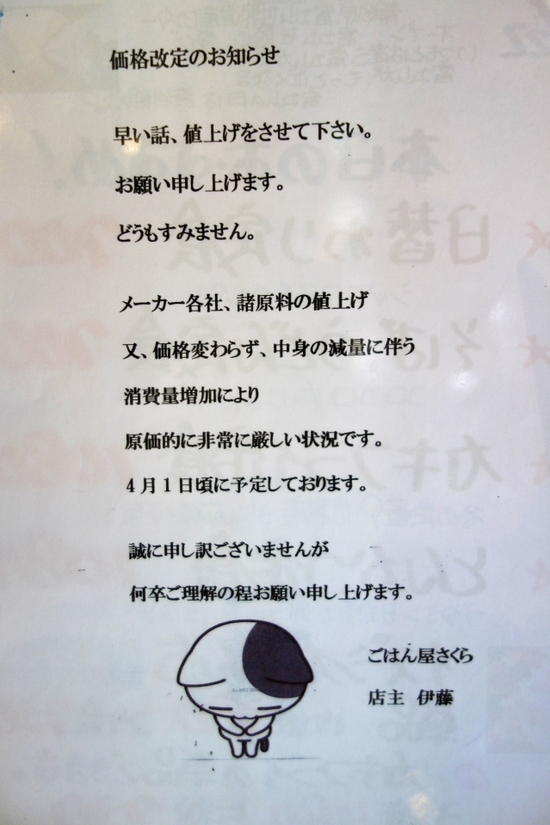 価格改定のお知らせ
早い話、値上げをさせて下さい。
お願い申し上げます。
どうもすみません。
メーカー各社、諸原料の値上げ
又、価格変わらず、中身の減量に伴う
消費量増加により
原価的に非常に厳しい状況です。
4月1日頃に予定しております。
誠に申し訳ございませんが
何卒ご理解の程お願い申し上げます。
ごはん屋さくら
店主　伊藤